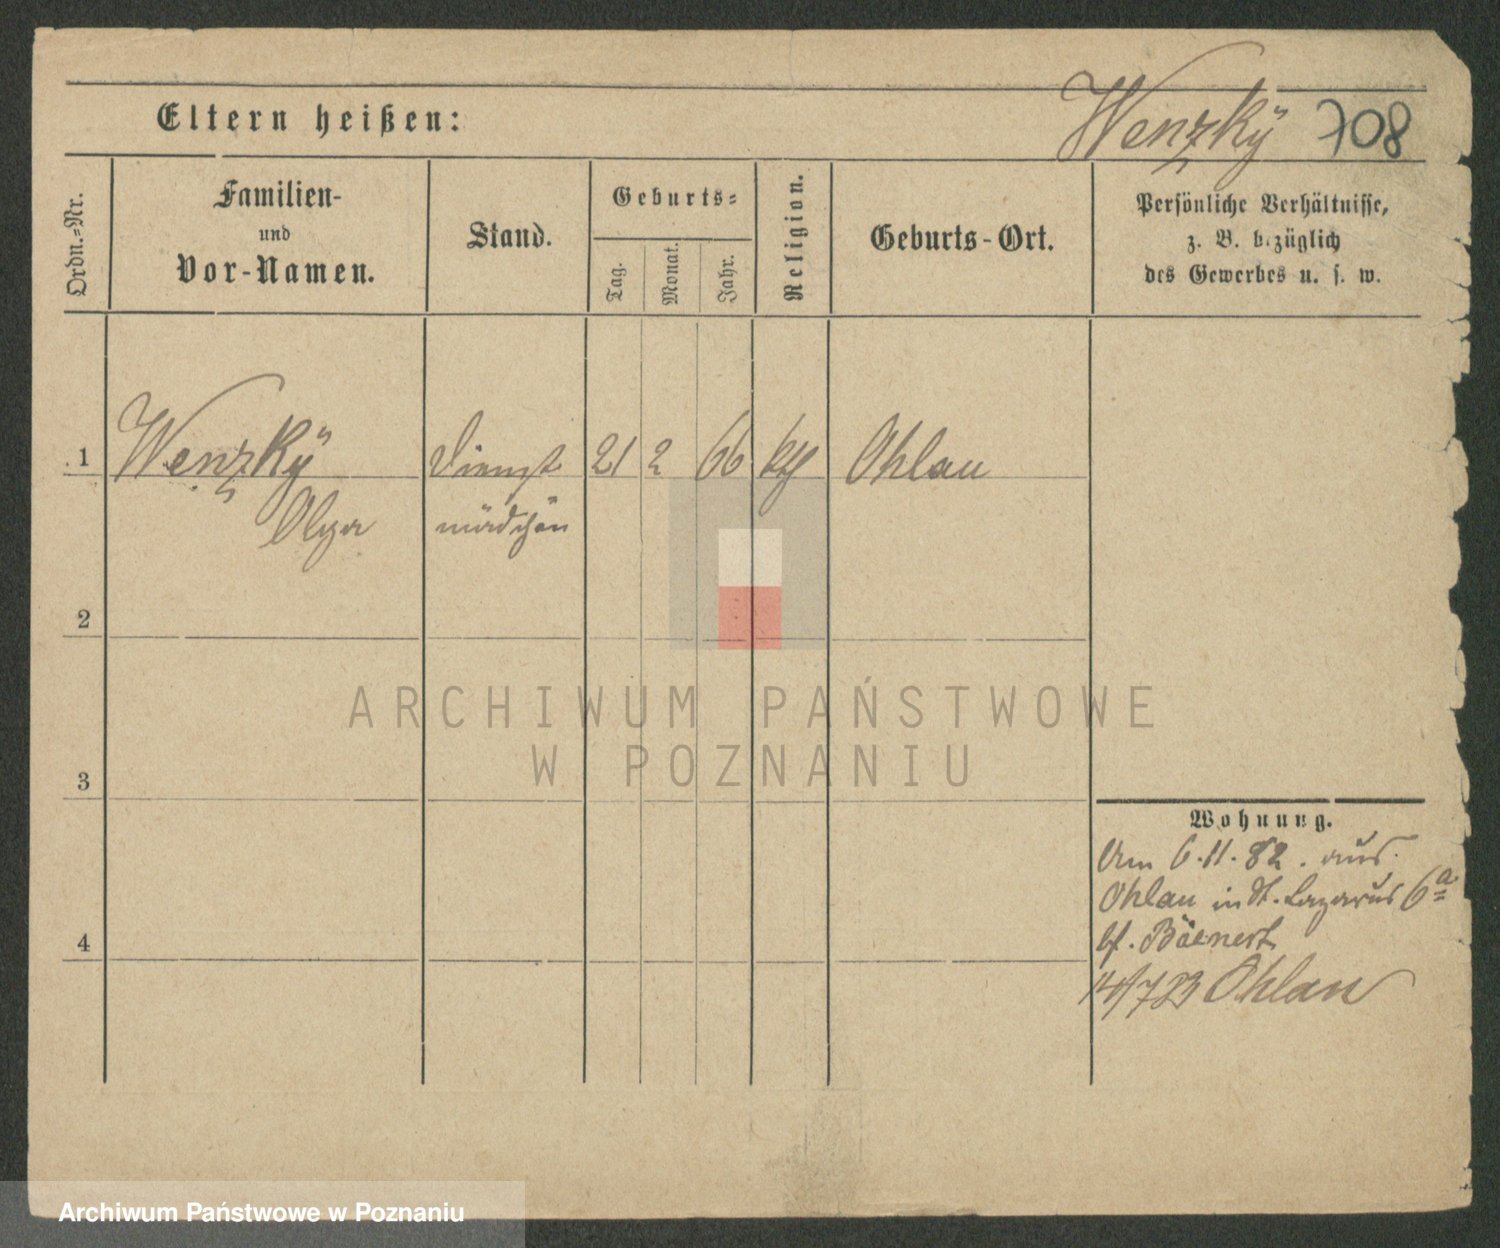 Eltern heißen:
Wenzky 708
Ordn.-Nr.
Familien-
und
Vor-Namen.
Stand.
Geburts-
Tag.
Monat.
Jahr.
Religion.
Geburts-Ort.
Persönliche Verhältnisse,
z. B. bezüglich
des Gewerbes u. s. w.
1 Wenzky Dienst 21 2 66 Ohlau
Olga mädchen
2
3
4
ARCHIWUM PAŃSTWOWE
W POZNANIU
Wohnung.
Am 6.11.82. aus
Ohlau in St. Lazarus 6a
Ohlau
Archiwum Państwowe w Poznaniu